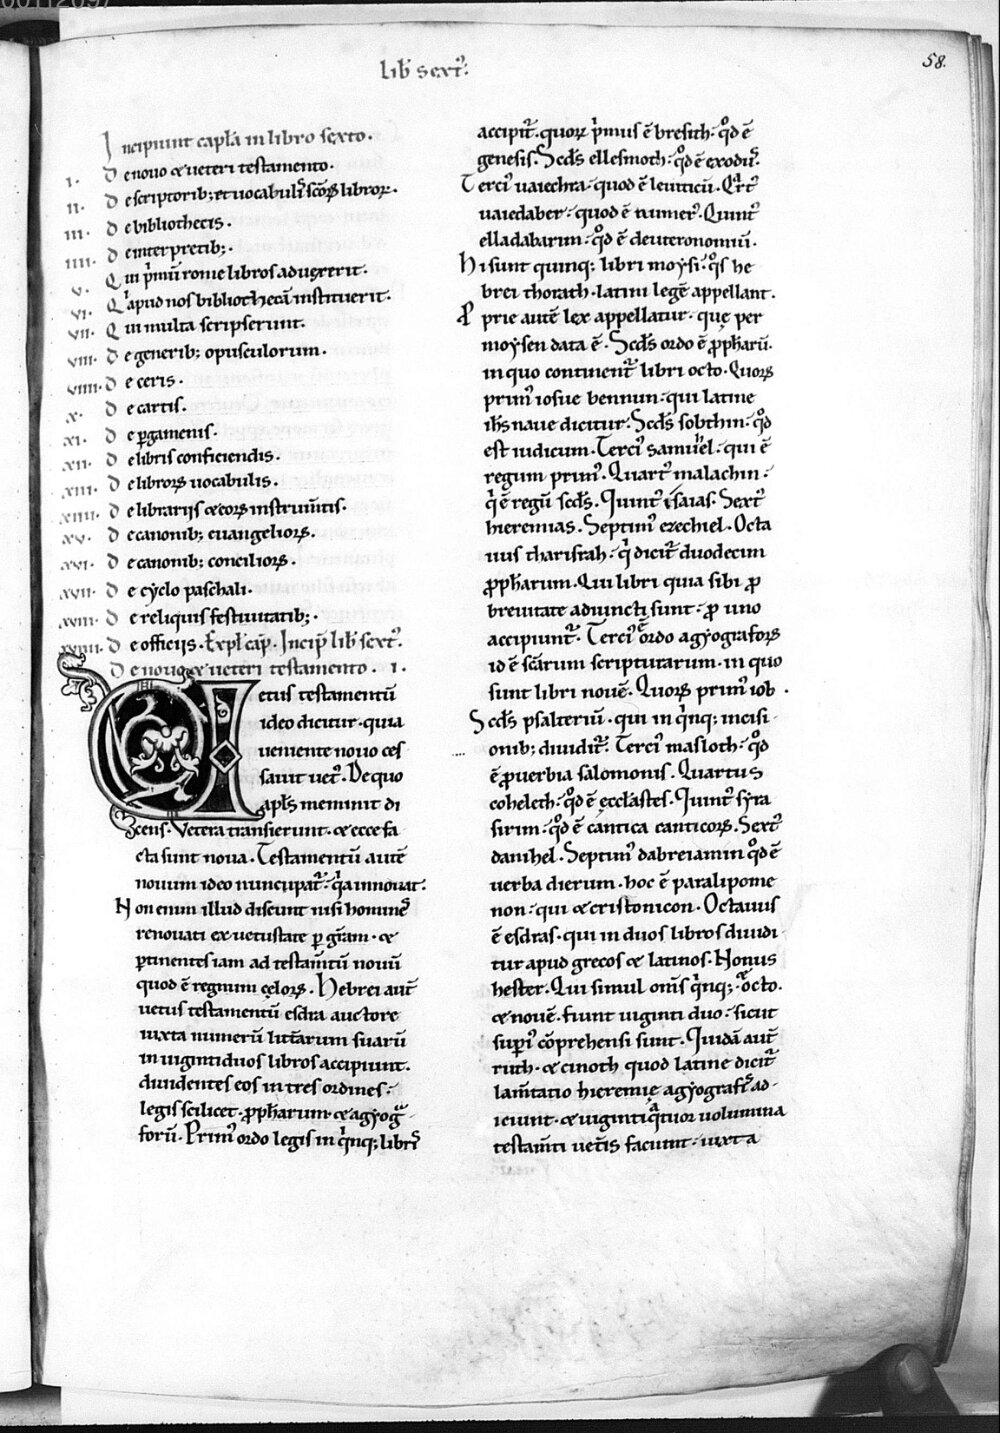 lib̄ sext᷒.
58.
Incipiunt capl̄a in libro sexto.
I. De nouo & ueteri testamento.
II. De scriptorib; et uocabulis sc̄oꝝ libroꝝ.
III. De bibliothecis.
IIII. De interpretib;.
V. Qui p̄mū rome libros aduexerit.
VI. Q̄ apud nos bibliothecā instituerit.
VII. Qui multa scripserunt.
VIII. De generib; opusculorum.
VIIII. De ceris.
X. De cartis.
XI. De ꝑgamenis.
XII. De libris conficiendis.
XIII. De libroꝝ uocabulis.
XIIII. De librariis & eoꝝ instrum̄tis.
XV. De canonib; euangelioꝝ.
XVI. De canonib; concilioꝝ.
XVII. De cyclo paschali.
XVIII. De reliquis festiuitatib;.
XVIIII. De officiis. Expl̄ cap̄. Incip̄ lib̄ sext᷒.
De nouo & ueteri testamento. I.
Uetus testamentū
ideo dicitur. quia
ueniente nouo ces
sauit uet᷒. De quo
apl̄s meminit di
cens. Vetera transierunt. & ecce fa
cta sunt noua. Testamentū autē
nouum ideo nuncupat᷑. q̄a innouat.
Non enim illud discunt nisi homines
renouati ex uetustate ꝑ gr̄am. &
ꝑtinentes iam ad testam̄tū nouū
quod ē regnum cęloꝝ. Hebrei aut̄
uetus testamentū esdra auctore
iuxta numerū litt̄arum suarū
in uigintiduos libros accipiunt.
diuidentes eos in tres ordines.
legis scilicet. ꝓph̄arum. & agyog̃
forū. Prim᷒ ordo legis in q̄nq; libris
accipit᷑. quoꝝ p̄mus ē bresith. qd̄ ē
genesis. Scd̄s ellesmoth. qd̄ ē exodus.
Terci᷒ uaiechra. quod ē leuiticū. Q̄rt᷒
uaiedaber. quod ē numer᷒. Quint᷒
elladabarim. qd̄ ē deuteronomiū.
Hi sunt quinq; libri moysi. qo̅s he
brei thorath. latini legē appellant.
Ꝓprie autē lex appellatur. quę per
moysen data ē. Scd̄s ordo ē ꝓph̄arū.
in quo continent᷑ libri octo. Quoꝝ
prim᷒ iosue bennun. qui latine
ih̄s naue dicitur. Scd̄s sobthin. qd̄
est iudicum. Terci᷒ samuel. qui ē
regum prim᷒. Quart᷒ malachin.
q̄ ē regū scd̄s. Quint᷒ isaias. Sext᷒
hieremias. Septim᷒ ezechiel. Octa
uus tharisrah. q̄ dicit᷑ duodecim
ꝓph̄arum. Qui libri quia sibi ꝓ
breuitate adiuncti sunt. ꝓ uno
accipiunt᷑. Terci᷒ ē ordo agyografoꝝ
id ē sc̄arum scripturarum. in quo
sunt libri nouē. Quoꝝ prim᷒ iob.
Scd̄s psalteriū. qui in q̄nq; incisi
onib; diuidit᷑. Terci᷒ masloth. qd̄
ē ꝓuerbia salomonis. Quartus
coheleth. qd̄ ē ęccl̄astes. Quint᷒ syra
sirim. qd̄ ē cantica canticoꝝ. Sext᷒
danihel. Septim᷒ dabreiamin qd̄ ē
uerba dierum. hoc ē paralipome
non. qui & cristonicon. Octauus
ē esdras. qui in duos libros diuidi
tur apud grecos & latinos. Nonus
hester. Qui simul om̄s q̄nq;. octo.
& nouē. fiunt uiginti duo. sicut
supi᷒ cōprehensi sunt. Quidā aut̄
ruth. & cinoth quod latine dicit᷑
lam̄tatio hieremię agyografis ad
iciunt. & uiginti q̄tuor uolumina
testam̄ti uet̄is faciunt. iuxta